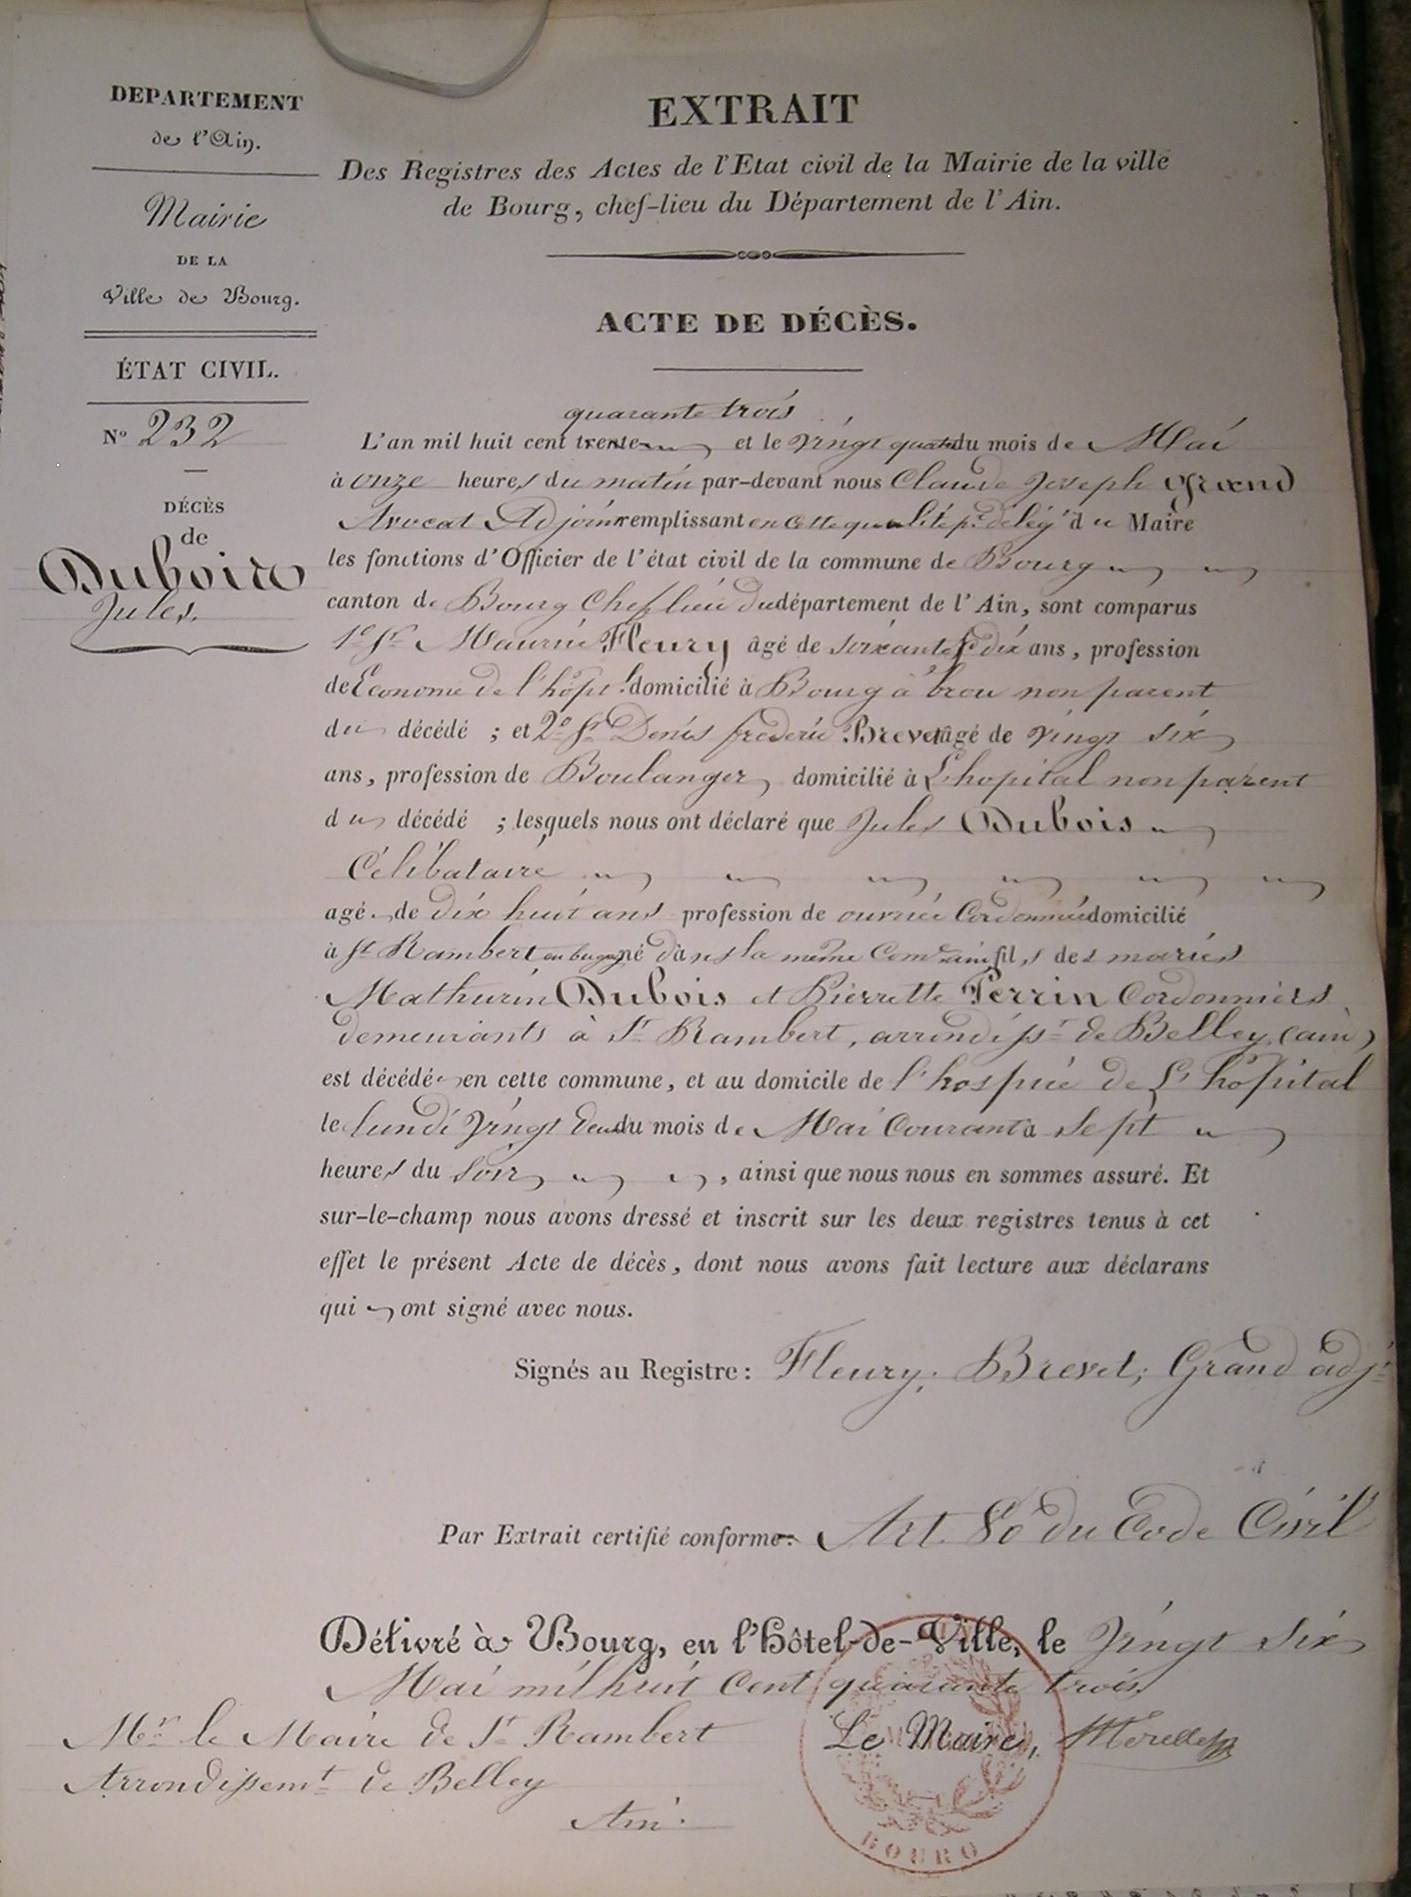 DEPARTEMENT
de l'Ain.
Mairie
DE LA
Ville de Bourg.
ÉTAT CIVIL.
N° 232
DÉCÈS
de
Dubois
Jules.
EXTRAIT
Des Registres des Actes de l'Etat civil de la Mairie de la ville
de Bourg, chef-lieu du Département de l'Ain.
ACTE DE DÉCÈS.
quarante trois
L'an mil huit cent trente et le vingt quatre du mois de Mai
à onze heures du matin par-devant nous Claude Joseph Grand
Avocat Adjoint remplissant en cette qualité pr. délég.n du Maire
les fonctions d'Officier de l'état civil de la commune de Bourg
canton de Bourg Chef lieu du département de l'Ain, sont comparus
1° Sr. Maurice Fleury âgé de soixante & dix ans, profession
de Econome de l'hôpl. domicilié à Bourg à brou non parent
du décédé ; et 2° Sr. Denis frederic Brevet âgé de vingt six
ans, profession de Boulanger, domicilié à L'hopital non parent
du décédé ; lesquels nous ont déclaré que Jules Dubois
Célibataire
agé de dix huit ans profession de ouvrier Cordonnier domicilié
à St. Rambert en bugey né dans la même Comne. ain fils des mariés
Mathurin Dubois et Pierrette Perrin Cordonniers
demeurants à St. Rambert, arrondisst. de Belley, (ain)
est décédé en cette commune, et au domicile de l'hospice de L'hôpital
le lundi vingt deux du mois de Mai Courant à sept
heures du soir, ainsi que nous nous en sommes assuré. Et
sur-le-champ nous avons dressé et inscrit sur les deux registres tenus à cet
effet le présent Acte de décès, dont nous avons fait lecture aux déclarans
qui ont signé avec nous.
Signés au Registre : Fleury; Brevet; Grand adjt.
Par Extrait certifié conforme. Art. 80 du Code Civil
Délivré à Bourg, en l'Hôtel-de-Ville, le vingt six
Mai mil huit Cent quarante trois
Mr. le Maire de St. Rambert
Le Maire,
Arrondissemt. de Belley
Ain.
BOURG